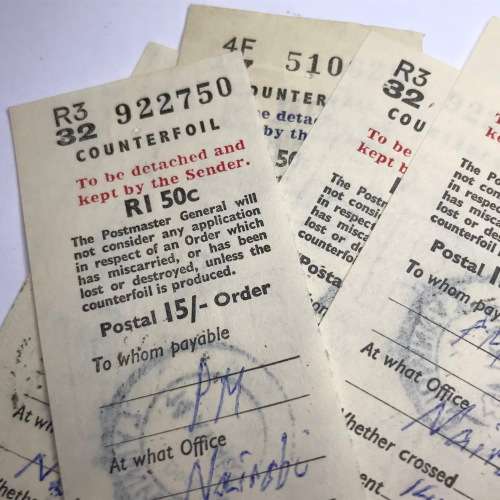 R3
32 922750
COUNTERFOIL
To be detached and
kept by the Sender.
R1 50c
The Postmaster General will
not consider any application
in respect of an Order which
has miscarried, or has been
lost or destroyed, unless the
counterfoil is produced.
Postal 15/- Order
To whom payable
PM
At what Office
Nairobi
4F
510
COUNTERF
be detached
by the
R3
32
COUNTERF
To be
kept by
The Postm
not consid
in respect
has misca
lost or d
counterfo
Postal
To be
kept by
The Postma
not conside
in respect
has misca
lost or des
counterfo
Posta
To whom pay
At what Office
Nair
Whether crossed
At wh